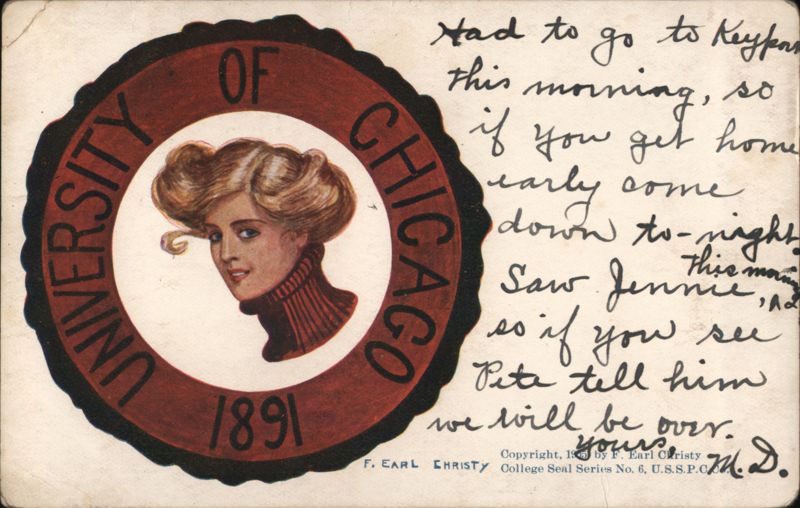 UNIVERSITY OF CHICAGO
1891
Had to go to Keyport
this morning, so
if you get home
early come
down to-night.
Saw Jennie, this morning
so if you see
Pete tell him
we will be over.
yours,
M.D.
F. EARL CHRISTY
Copyright, by F. Earl Christy
College Seal Series No. 6, U.S.S.P.C.